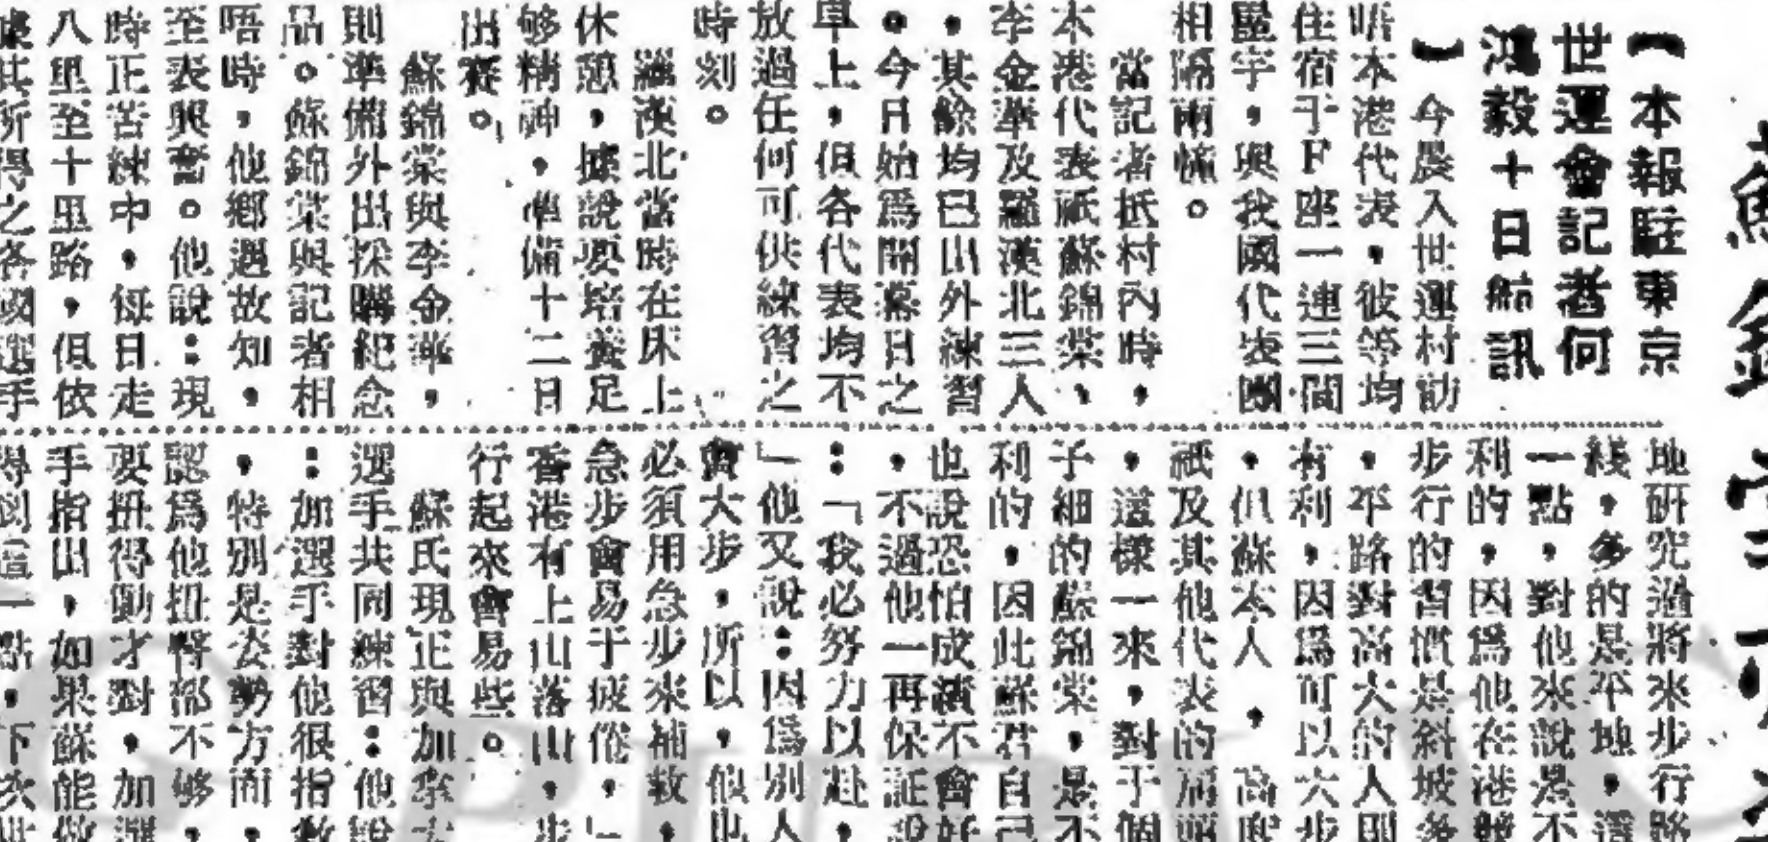 蘇錦棠
【本報駐東京
世運會記者何
鴻毅十日航訊
】今晨入世運村訪
晤本港代表，彼等均
住宿于F座一連三間
屋宇，與我國代表團
相隔兩幢。
當記者抵村內時，
本港代表祇蘇錦棠、
李金華及羅漢北三人
，其餘均已出外練習
。今日始為開幕日之
早上，但各代表均不
放過任何可供練習之
時刻。
羅漢北當時在床上
休憩，據說要培養足
够精神，準備十二日
出賽。
蘇錦棠與李金華，
則準備外出採購紀念
品。蘇錦棠與記者相
晤時，他鄉遇故知，
至表興奮。他說：現
時正苦練中，每日走
八里至十里路，但依
其所得之各國選手
地研究過將來步行路
綫，多的是平地，這
一點，對他來說是不
利的，因為他在港競
步行的習慣是斜坡多
，平路對高大的人則
有利，因為可以大步
，但蘇本人，高度
祇及其他代表的肩頭
，這樣一來，對于個
子細的蘇錦棠，是不
利的，因此蘇君自己
也說恐怕成績不會好
，不過他一再保証說
：「我必努力以赴，
」他又說：因為別人
實大步，所以，他也
必須用急步來補救，
急步會易于疲倦，
香港有上山落山，步
行起來會易些。
蘇氏現正與加拿大
選手共同練習：他說
：加選手對他很指教
，特別是去勢方面，
認為他扭臀部不够，
要扭得勁才對，加選
手指出，如果蘇能做
得到這一點，下次世